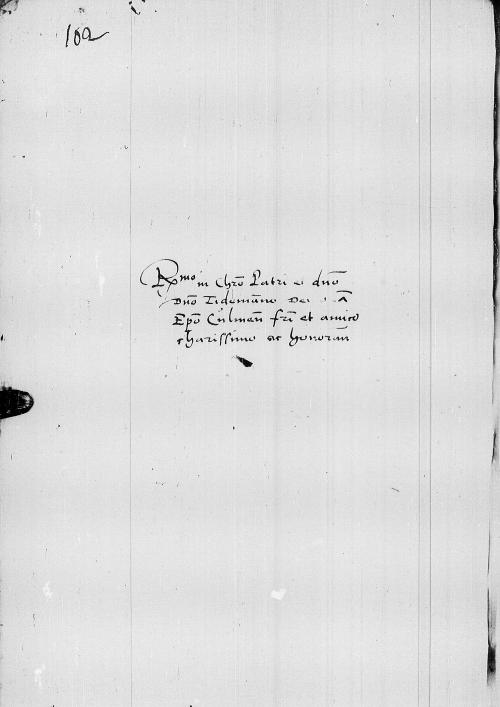 102
R<sup>mo</sup> in Chro Patri et dno
Dno Tidemano Dei
Epo Culmen fri et amico
charissimo ac honoran